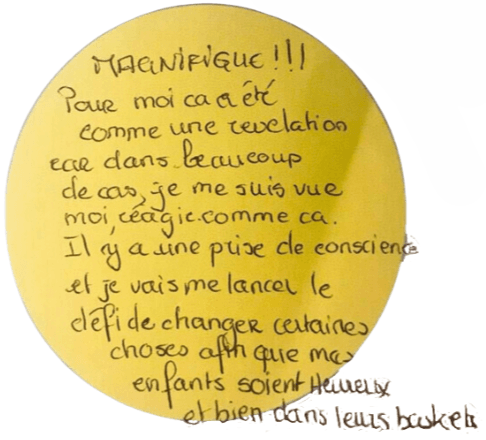 MAGNIFIQUE!!!
Pour moi ca a été
comme une revelation
car dans beaucoup
de cas, je me suis vue
moi, réagir comme ca.
Il y a une prise de conscience
et je vais me lancer le
défi de changer certaines
choses afin que mes
enfants soient Heureux
et bien dans leurs baskets